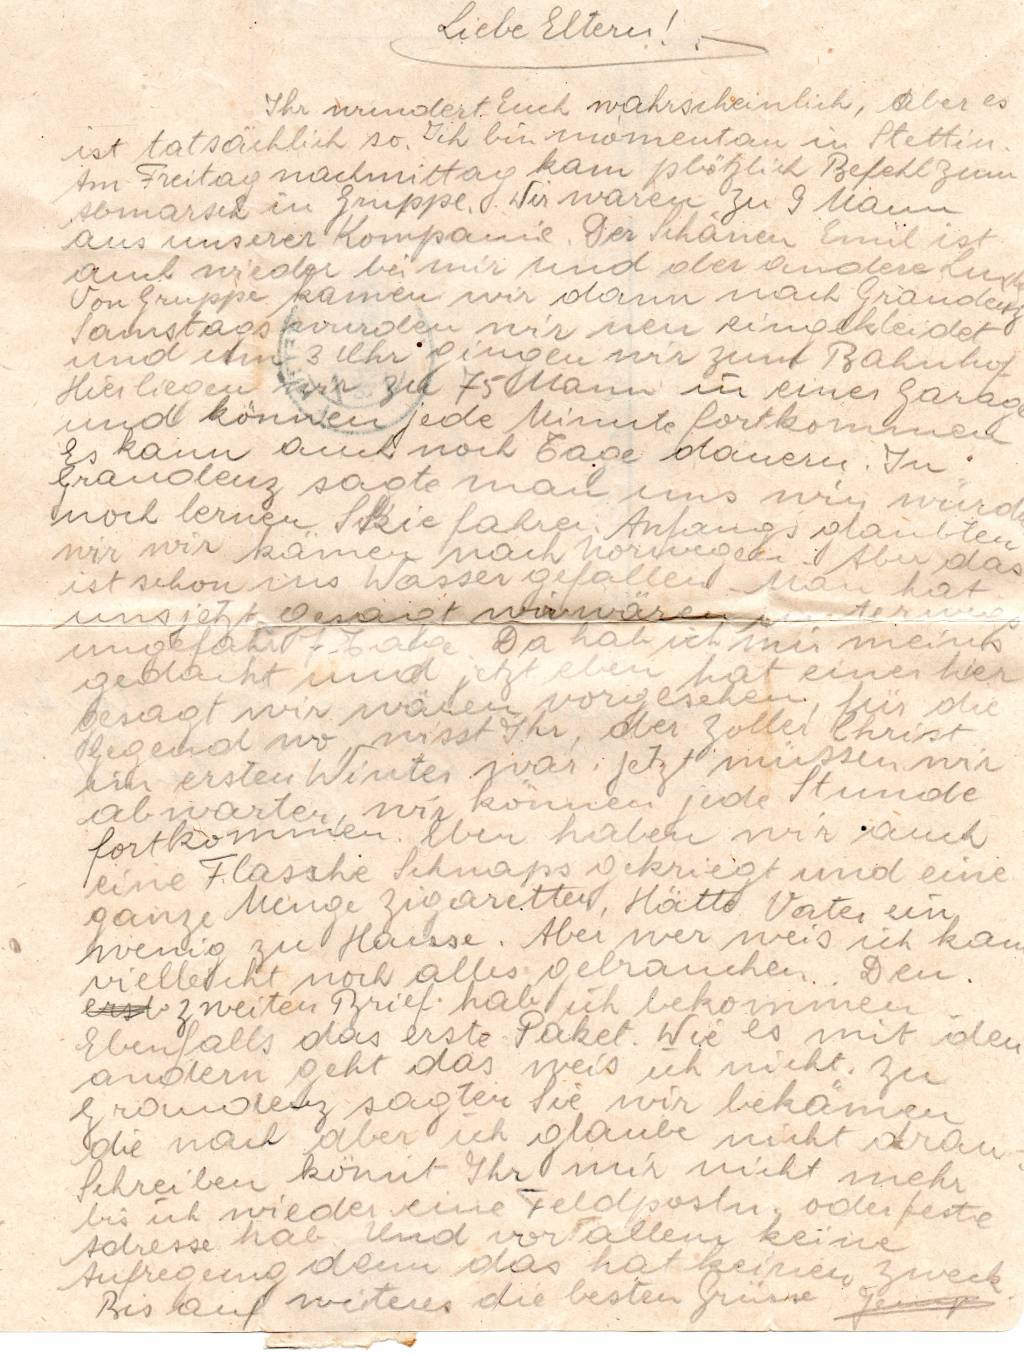 Liebe Eltern!
Ihr wundert Euch wahrscheinlich, aber es
ist tatsächlich so. Ich bin momentan in Stettin.
Am Freitag nachmittag kam plötzlich Befehl zum
abmarsch in Gruppe. Wir waren zu 9 Mann
aus unserer Kompanie. Der Schänen Emil ist
auch wieder bei mir und der andere
Von Gruppe kamen wir dann nach Graudenz
Samstags wurden wir neu eingekleidet
und um 3 Uhr gingen wir zum Bahnhof
Hier liegen wir zu 75 Mann in einer Garage
und können jede Minute fortkommen
Es kann auch noch Tage dauern. In
Graudenz sagte man uns wir würden
noch lernen Skie fahren. Anfangs glaubten
wir wir kämen nach Norwegen. Aber das
ist schon ins Wasser gefallen. Man hat
uns jetzt gesagt wir wären unterwegs
ungefähr 7 Tage. Da hab ich mir meins
gedacht und jetzt eben hat einer hier
gesagt wir wären vorgesehen, für die
Gegend wo, wisst Ihr, der Zoller Christ
im ersten Winter war. jetzt müssen wir
abwarten, wir können jede Stunde
fortkommen. Eben haben wir auch
eine Flasche Schnaps gekriegt und eine
ganze Menge Zigaretten, Hätte Vater ein
wenig zu Hause. Aber wer weis ich kann
vielleicht noch alles gebrauchen. Den
zweiten Brief hab ich bekommen
Ebenfalls das erste Paket. Wie es mit den
andern geht das weis ich nicht. Zu
Graudenz sagten Sie wir bekämen
die nach aber ich glaube nicht dran.
Schreiben könnt Ihr mir nicht mehr
bis ich wieder eine Feldpostn. oder feste
Adresse hab. Und vor allem keine
Aufregung denn das hat keinen Zweck.
Bis auf weiteres die besten Grüsse